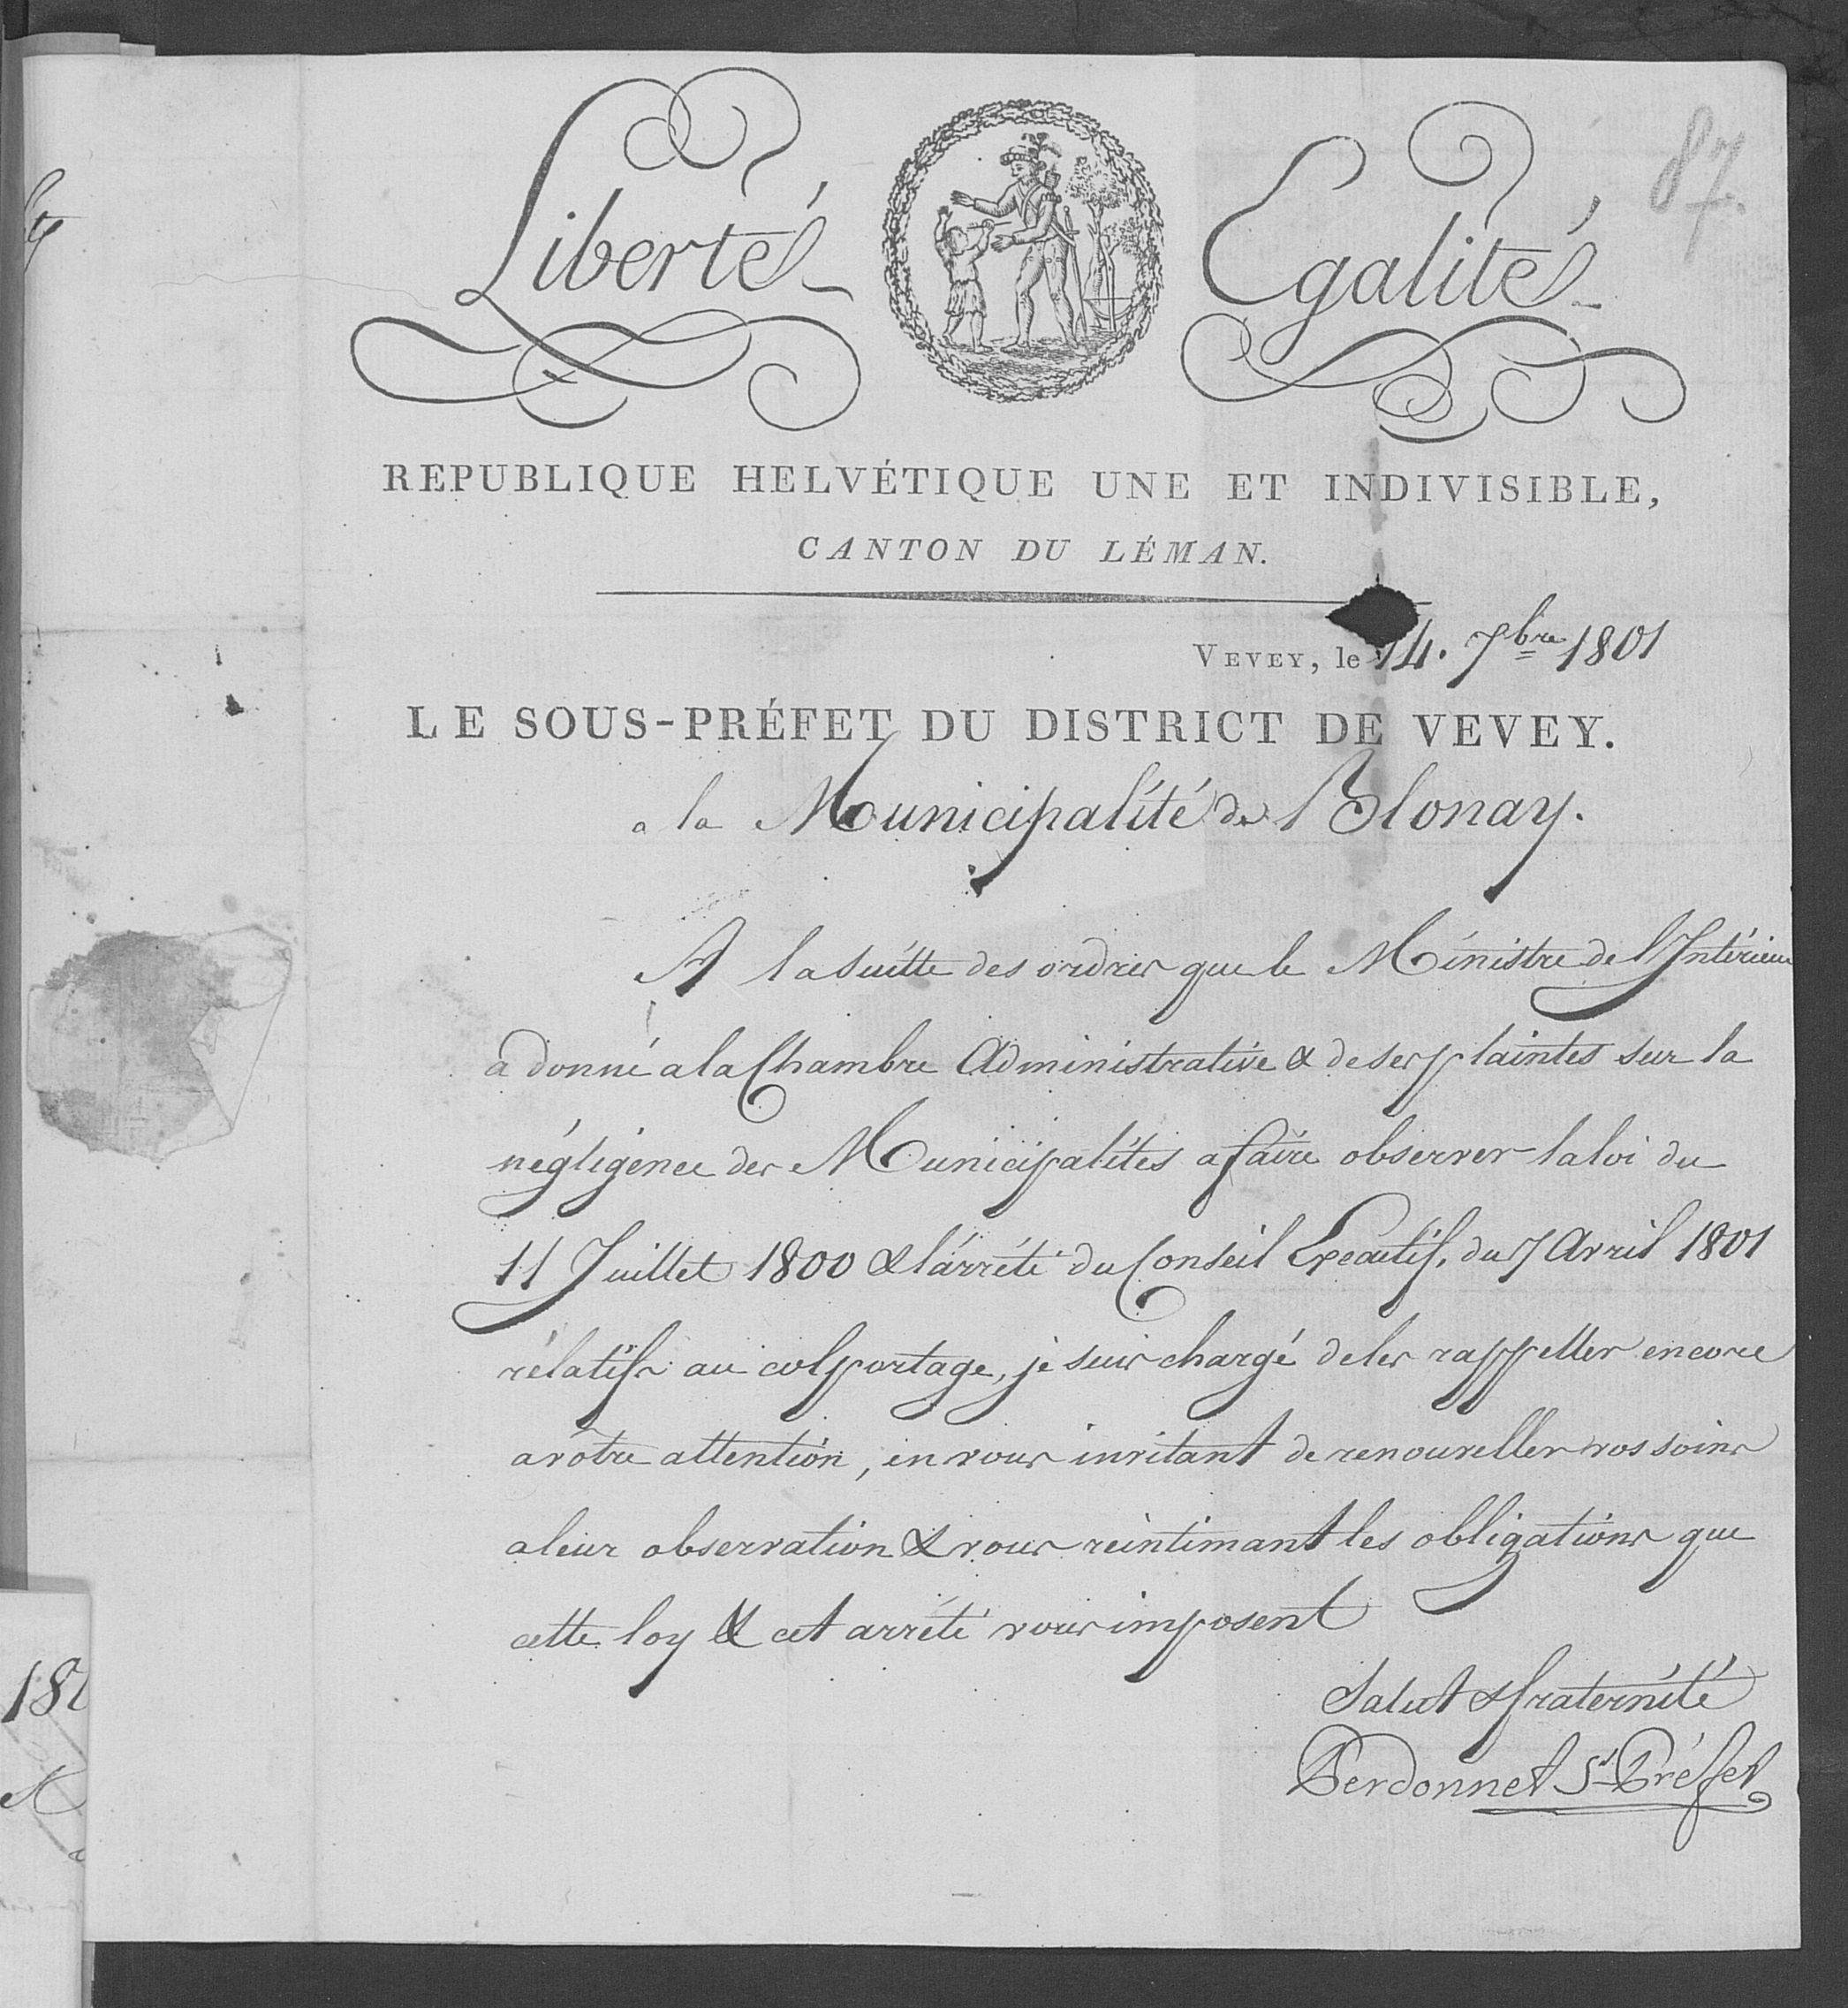 87.
Liberté Egalité
REPUBLIQUE HELVÉTIQUE UNE ET INDIVISIBLE,
CANTON DU LÉMAN.
VEVEY, le 14. 7bre 1801
LE SOUS-PRÉFET DU DISTRICT DE VEVEY.
a la Municipalité de Blonay.
A la suitte des ordres que le Ministre de l'Intérieur
a donné a la Chambre Administrative & de ses plaintes sur la
négligence des Municipalités a faire observer la loi du
11 Juillet 1800 & l'arrété du Conseil Executif, du 7 Avril 1801
rélatifs au colportage, je suis chargé de les rappeller encore
a vôtre attention, en vous invitant de renouveller vos soins
a leur observation & vous réintimant les obligations que
cette loy & cet arrété vous imposent
Salut & fraternité
Perdonnet Ss Préfet
182